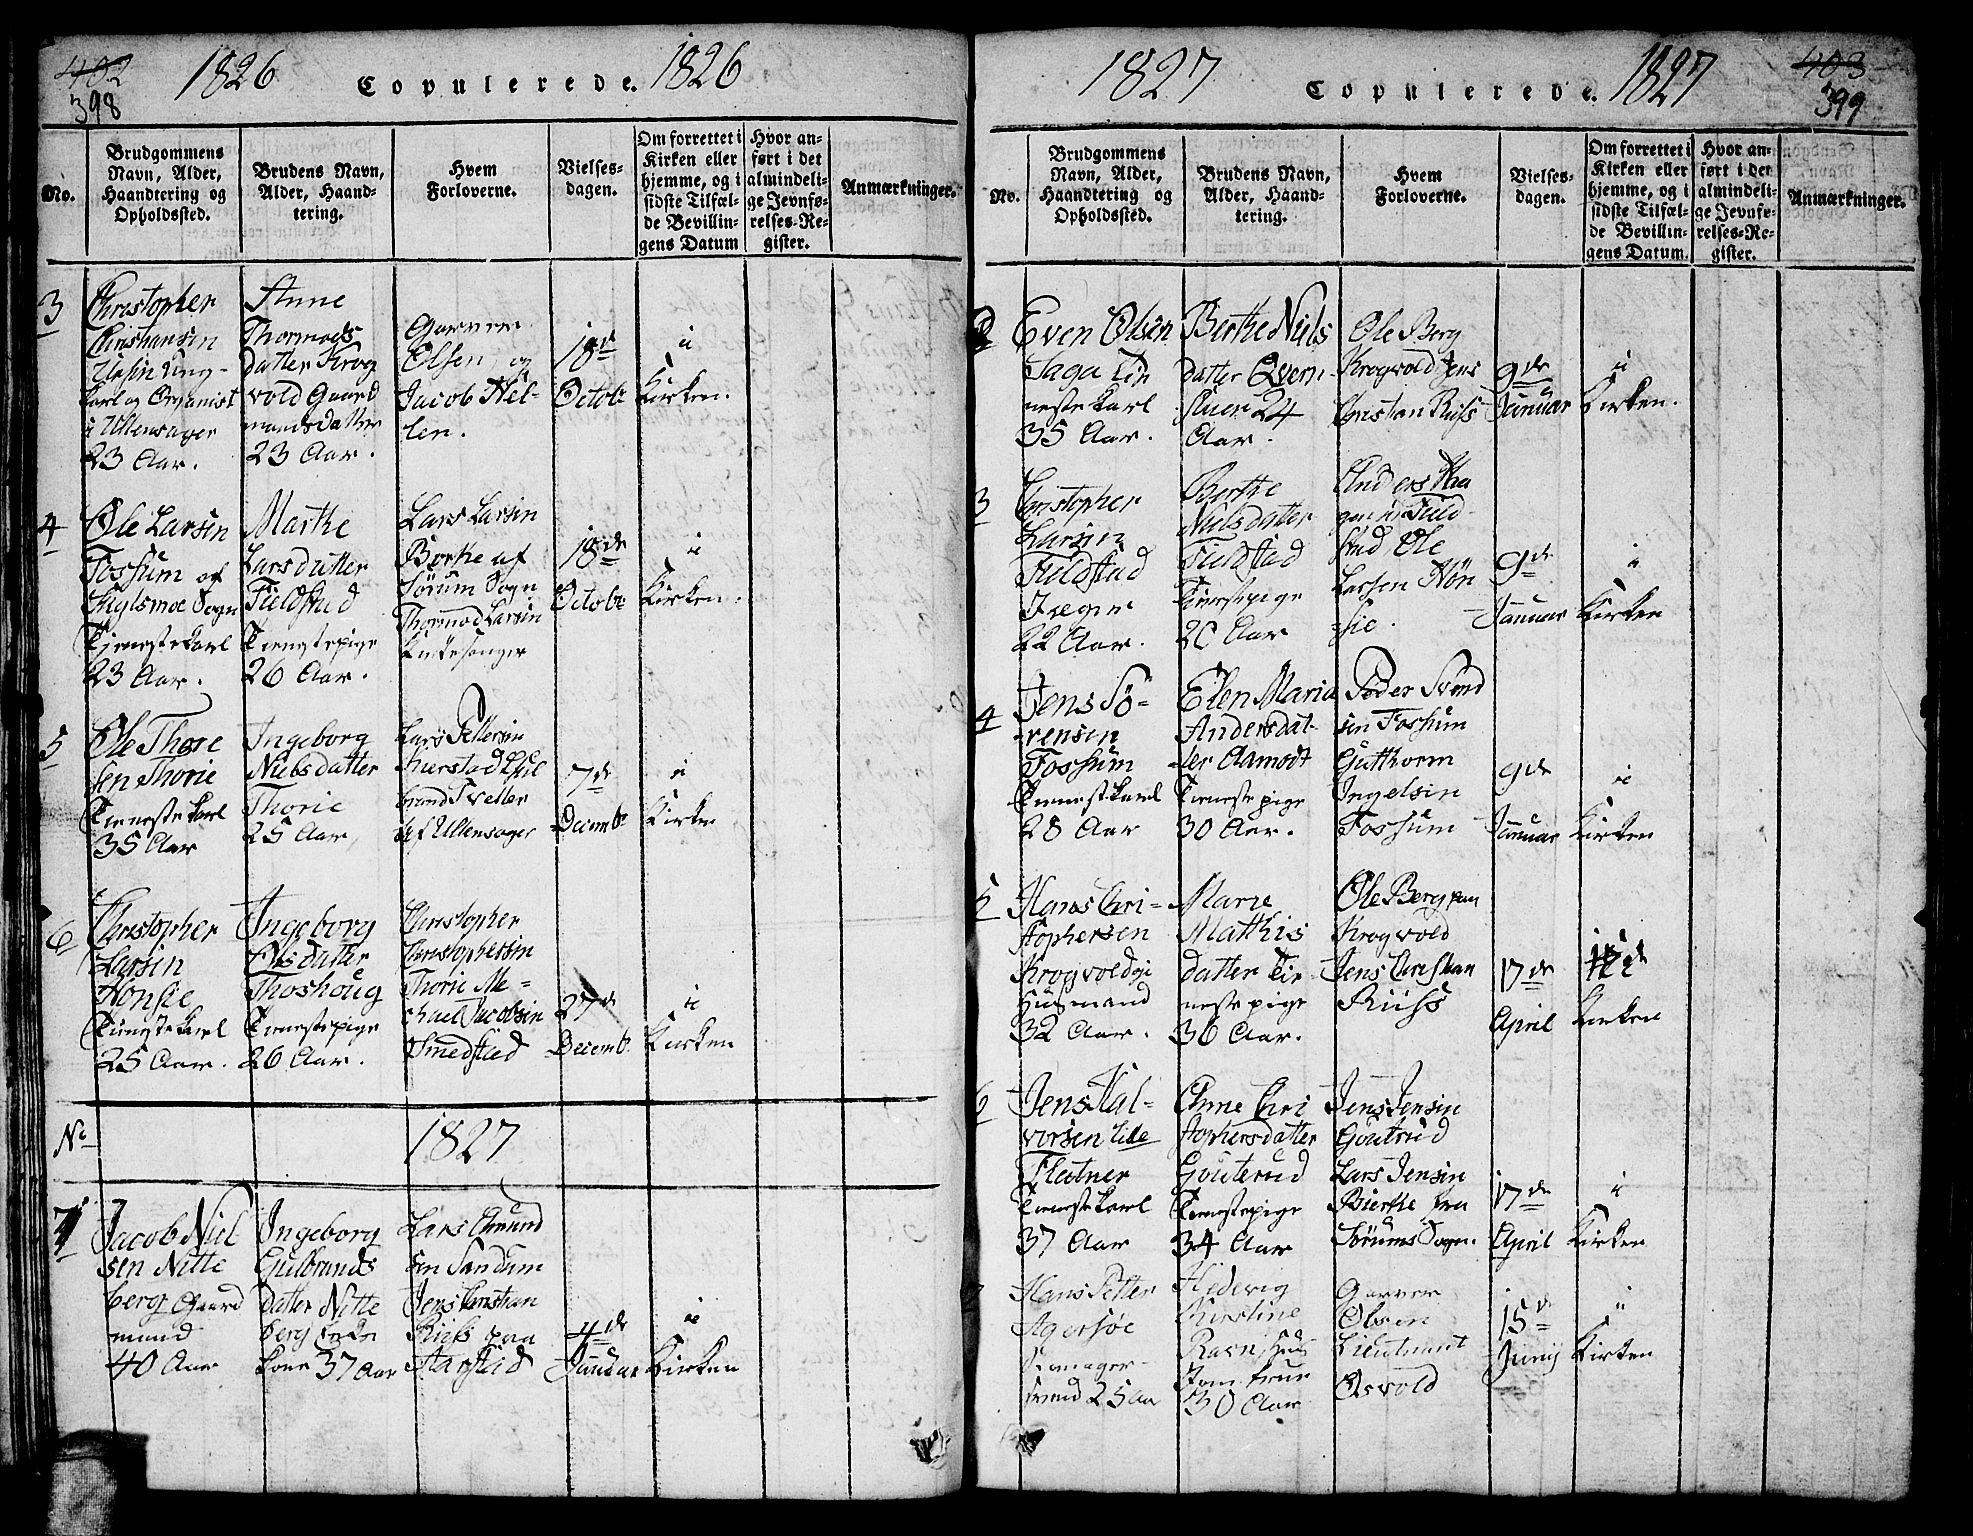 402
398
1826
Copulerede.
1826
No.
Brudgommens
Navn, Alder,
Haandtering og
Opholdssted.
Brudens Navn,
Alder, Haand-
tering.
Hvem
Forloverne.
Vielses-
dagen.
Om forrettet i
Kirken eller
hjemme, og i
sidste Tilfæl-
de Bevillin-
gens Datum
Hvor an-
ført i det
almindeli-
ge Jevnfø-
relses-Re-
gister.
Anmærkninger.
3
Christopher
Christiansen
Ung-
karl og Organist
i Ullensager
23 Aar.
Anne
Thormods
datter Krog
vold Gaard
mandsdatter
23 Aar.
Garver
Elsen, og
Jacob Niel-
sen.
18de
Octobr
i
Kirken.
4
Ole Larsen
Fossum af
Sogn
Tjenestekarl
23 Aar.
Marthe
Larsdatter
Fieldstad
Tienestepige
26 Aar.
Lars Larsen
Borke af
Sørum Sogn
Thormod Larsen
Kirkesanger
18de
Octobr
i
Kirken.
5
Ole Thore
sen Thorie
Tienestekarl
35 Aar
Ingeborg
Nielsdatter
Thorie
25 Aar,
Lars Pettersen
brand Tveller
af Ullensager
7de
Decembr
i
Kirken
6
Christopher
Larsen
Honsie
Tienestekarl
25 Aar.
Ingeborg
Olsdatter
Thoshoug
Tienestepige
26 Aar.
Christopher
Christophersen
Thorie Me-
chael Jacobsen
Smedstad
27de
Decemb.
i
Kirken
No
1827
1
Jacob Niel
sen Nitte
berg Gaard
mand
40 Aar
Ingeborg
Gulbrands
datter Nitte
berg Enke
kone 37 Aar
Lars Amund
sen Sandum
Jens Christian
Riis fra
Aarstad
4de
Januar
i
Kirken
1827
Copulerede.
1827
403
399
No.
Brudgommens
Navn, Alder,
Haandtering og
Opholdssted.
Brudens Navn,
Alder, Haand-
tering.
Hvem
Forloverne.
Vielses-
dagen.
Om forrettet i
Kirken eller
hjemme, og i
sidste Tilfæl-
de Bevillin-
gens Datum.
Hvor an-
ført i det
almindeli-
ge Jevnfø-
relses-Re-
gister.
Anmærkninger.
2
Even Olsen
Saga Tie
nestekarl
35 Aar.
Berthe Niels
datter Qvern
24
Aar.
Ole Berg
Krogvold Jens
Christian Riis
9de
Januar
i
Kirken.
3
Christopher
Larsen
Fieldstad
22 Aar.
Berthe
Nielsdatter
Fieldstad
Tienestepige
20 Aar
Anders Haa
gensen Field
stad Ole
Larsen Hon
sie.
9de
Januar
i
Kirken
4
Jens Sö-
rensen
Fossum
Tienestekarl
28 Aar
Elen Maria
Andersdat-
ter Aamodt
Tienestepige
30 Aar.
Peder Svend
sen Fossum
Gutthorm
Ingelsen
Fossum
9de
Januar
i
Kirken
5
Hans Chri-
stophersen
Krogvoldeje
Husmand
32 Aar.
Marie
Mathis
datter Tie
nestepige
36 Aar.
Ole Berg paa
Krogvold
Jens Christian
Riiss
17de
April
i
Kirken
6
Jens Hal-
vorsen Lille
Flatner
Tienestekarl
37 Aar
Anne Chri
stophersdatter
Gouterud
Tienestepige
34 Aar
Jens Jensen
Goutrud
Lars Jensen
Bierke fra
Sørums Sogn.
17de
April
i
Kirken
Hans Petter
Agersøe
svend 25 Aar
Hedevig
Kirstine
Ravn, Huus
Jomfrue
30 Aar
Garver
Olsen
Lieutnant
Osvold
15de
Junij
i
Kirken